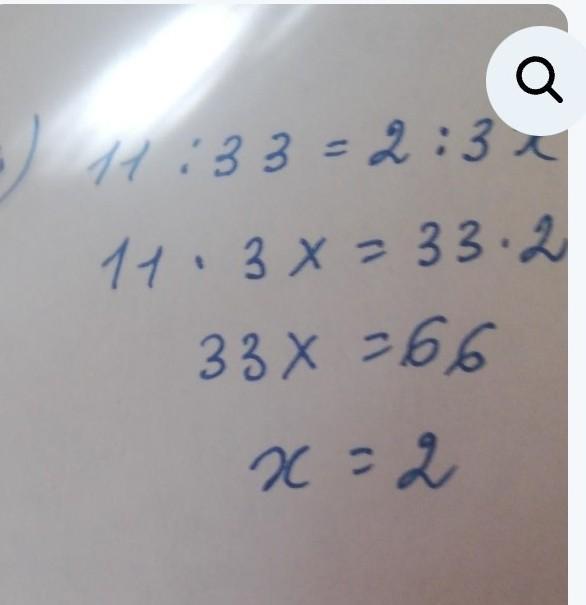 ) 11 : 33 = 2 : 3x
11 · 3x = 33 · 2
33x = 66
x = 2